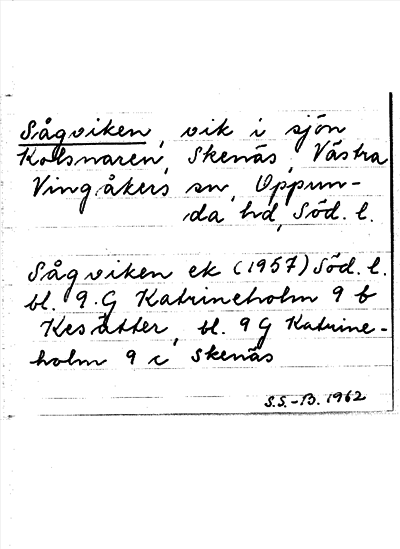 Sågviken, vik i sjön
Kolsnaren, Skenäs, Västra
Vingåkers sn, Oppun-
da hd, Söd. l.
Sågviken ek (1957) Söd. l.
bl. 9 G Katrineholm 9 b
Kesätter, bl. 9 G Katrine-
holm 9 c Skenäs
S.S.-B. 1962